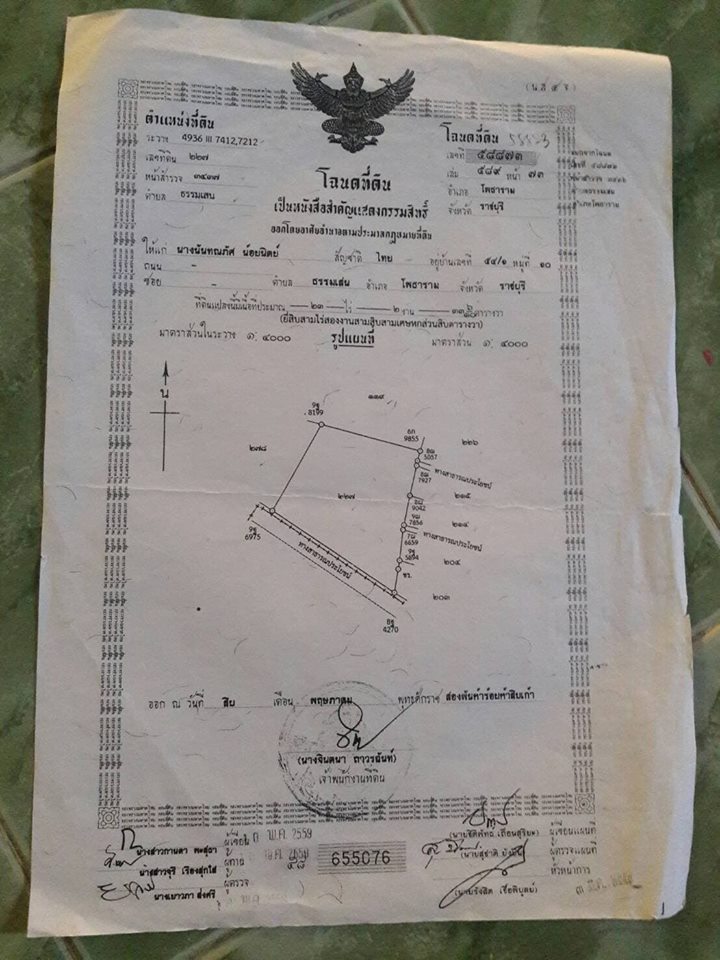 (น.ส. ๔ จ.)
ตำแหน่งที่ดิน
ระวาง 4936 III 7412,7212
เลขที่ดิน ๒๒๗
หน้าสำรวจ ๓๔๓๗
ตำบล ธรรมเสน
โฉนดที่ดิน
เลขที่ ๕๘๘๗๓
เล่ม ๕๘๙ หน้า ๗๓
อำเภอ โพธาราม
จังหวัด ราชบุรี
โฉนดที่ดิน
เป็นหนังสือสำคัญแสดงกรรมสิทธิ์
ออกโดยอาศัยอำนาจตามประมวลกฎหมายที่ดิน
ให้แก่ นางนันทณภัศ น้อยนิตย์ สัญชาติ ไทย อยู่บ้านเลขที่ ๕๔/๑ หมู่ที่ ๑๐
ถนน - ซอย - ตำบล ธรรมเสน อำเภอ โพธาราม จังหวัด ราชบุรี
ที่ดินแปลงนี้มีเนื้อที่ประมาณ ๒๓ ไร่ ๒ งาน ตารางวา
(ยี่สิบสามไร่สองงานสามสิบสามเศษหกส่วนสิบตารางวา)
มาตราส่วนในระวาง ๑: ๔๐๐๐ รูปแผนที่ มาตราส่วน ๑: ๔๐๐๐
น
๑๑๙
9ฐ
8199
6ก
9855
๒๒๖
๒๗๘
8ผ
5057
8ผ
7927
ทางสาธารณประโยชน์
๒๒๗
๒๑๕
8ผ
9042
9ผ
7856
๒๑๔
ทางสาธารณประโยชน์
7ผ
6659
9ฐ
5894
๒๐๔
9ฐ
6975
ทางสาธารณประโยชน์
ชว.
๒๐๓
8ฐ
4270
ออก ณ วันที่ สิบ เดือน พฤษภาคม พุทธศักราช สองพันห้าร้อยห้าสิบเก้า
(นางจินตนา ถาวรนันท์)
เจ้าพนักงานที่ดิน
นางสาวกานดา พะสุธา ผู้เขียน พ.ค. 2559
นางสาวจุรี เรืองสุกใส ผู้ทาน พ.ค. 2559
นางเยาวภา ส่งศรี ผู้ตรวจ
655076
ผู้เขียนแผนที่
(นายสุชาติ) ผู้ตรวจแผนที่
(นายรังสิต เชื้อพิบูลย์) หัวหน้าการ